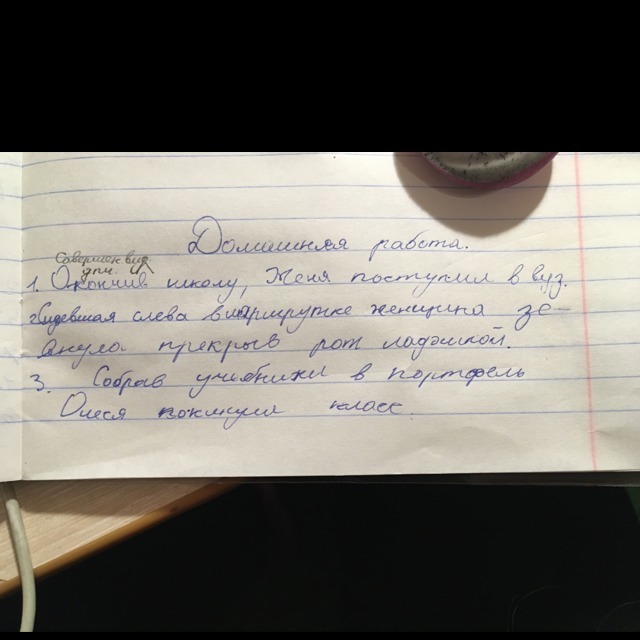 Домашняя работа.
Совершен вид
дпч.
1. Окончив школу, Женя поступил в вуз.
2. Сидевшая слева в маршрутке женщина зе-
внула прикрыв рот ладошкой.
3. Собрав учебники в портфель
Олеся покинула класс.